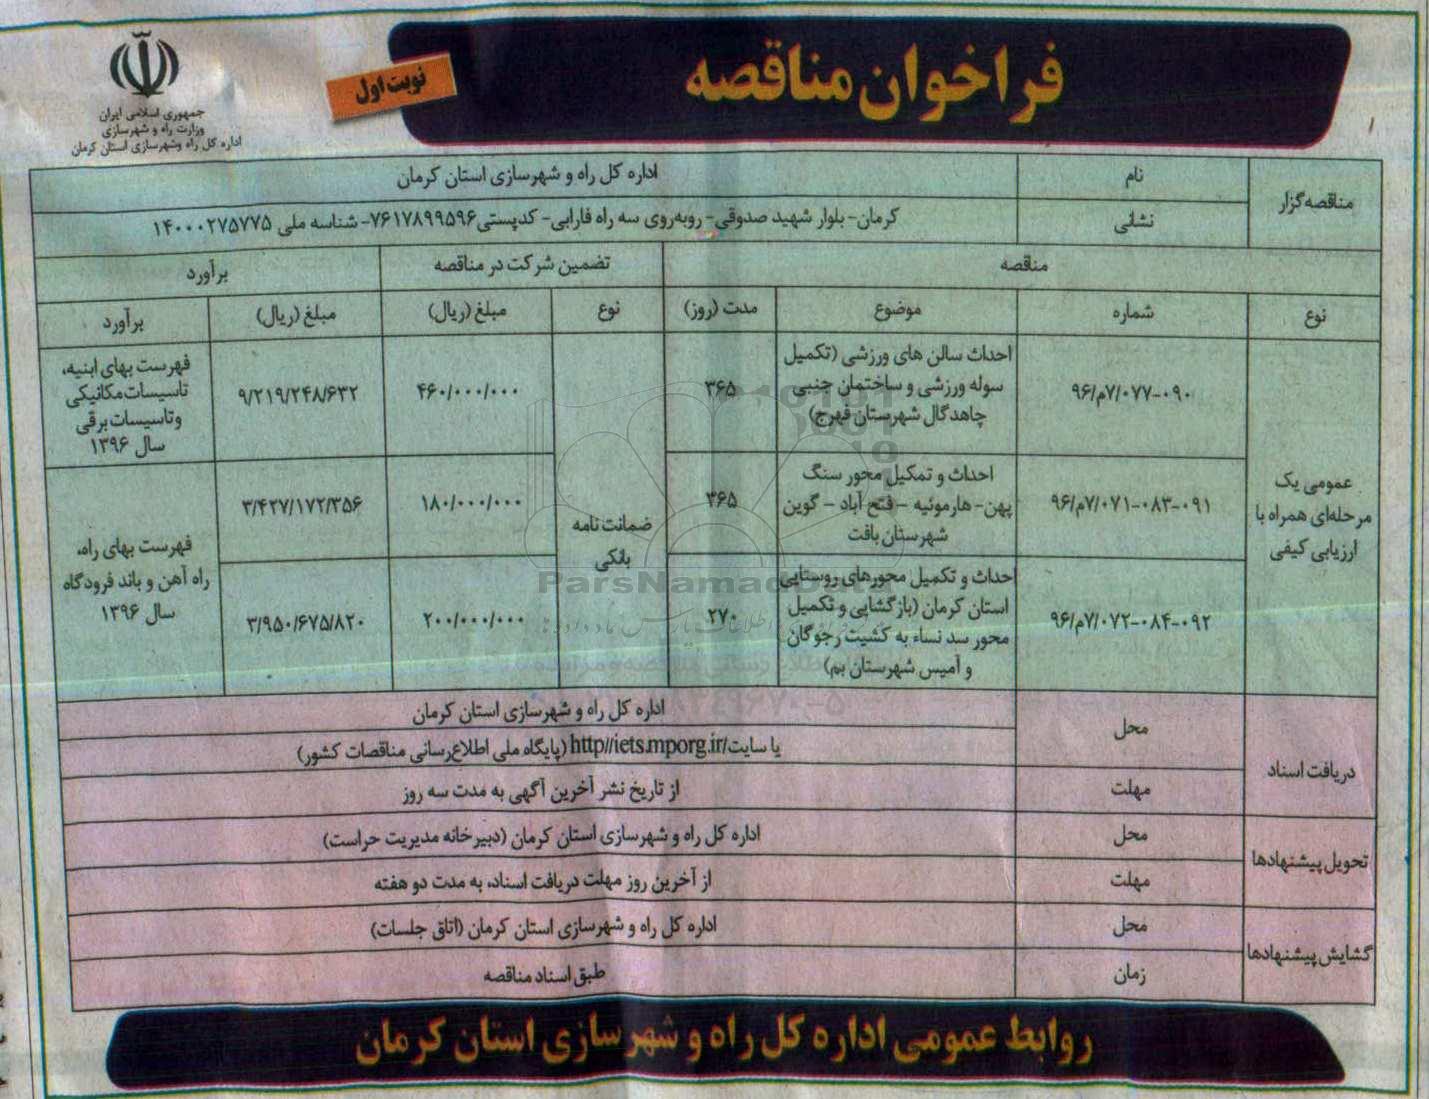 فراخوان مناقصه
نوبت اول
جمهوری اسلامی ایران
وزارت راه و شهرسازی
اداره کل راه وشهرسازی استان کرمان
۱
مناقصه‌گزار
نام
اداره کل راه و شهرسازی استان کرمان
نشانی
کرمان- بلوار شهید صدوقی- روبه‌روی سه راه فارابی- کدپستی۷۶۱۷۸۹۹۵۹۶- شناسه ملی ۱۴۰۰۰۲۷۵۷۷۵
مناقصه
تضمین شرکت در مناقصه
برآورد
نوع
شماره
موضوع
مدت (روز)
نوع
مبلغ (ریال)
مبلغ (ریال)
برآورد
عمومی یک
مرحله‌ای همراه با
ارزیابی کیفی
۹۶/م۷/۰۷۷-۰۹۰
احداث سالن های ورزشی (تکمیل
سوله ورزشی و ساختمان جنبی
چاهدگال شهرستان فهرج)
۳۶۵
ضمانت نامه
بانکی
۴۶۰/۰۰۰/۰۰۰
۹/۲۱۹/۲۴۸/۶۳۲
فهرست بهای ابنیه،
تاسیسات مکانیکی
وتاسیسات برقی
سال ۱۳۹۶
۹۶/م۷/۰۷۱-۰۸۳-۰۹۱
احداث و تمکیل محور سنگ
پهن- هارموئیه - فتح آباد - گوین
شهرستان بافت
۳۶۵
۱۸۰/۰۰۰/۰۰۰
۳/۴۲۷/۱۷۲/۳۵۶
فهرست بهای راه،
راه آهن و باند فرودگاه
سال ۱۳۹۶
۹۶/م۷/۰۷۲-۰۸۴-۰۹۲
احداث و تکمیل محورهای روستایی
استان کرمان (بازگشایی و تکمیل
محور سد نساء به کشیت رجوگان
و آمیس شهرستان بم)
۲۷۰
۲۰۰/۰۰۰/۰۰۰
۳/۹۵۰/۶۷۵/۸۲۰
ParsNamadData
دریافت اسناد
محل
اداره کل راه و شهرسازی استان کرمان
یا سایت/http//iets.mporg.ir (پایگاه ملی اطلاع‌رسانی مناقصات کشور)
مهلت
از تاریخ نشر آخرین آگهی به مدت سه روز
تحویل پیشنهادها
محل
اداره کل راه و شهرسازی استان کرمان (دبیرخانه مدیریت حراست)
مهلت
از آخرین روز مهلت دریافت اسناد، به مدت دو هفته
گشایش پیشنهادها
محل
اداره کل راه و شهرسازی استان کرمان (اتاق جلسات)
زمان
طبق اسناد مناقصه
روابط عمومی اداره کل راه و شهرسازی استان کرمان